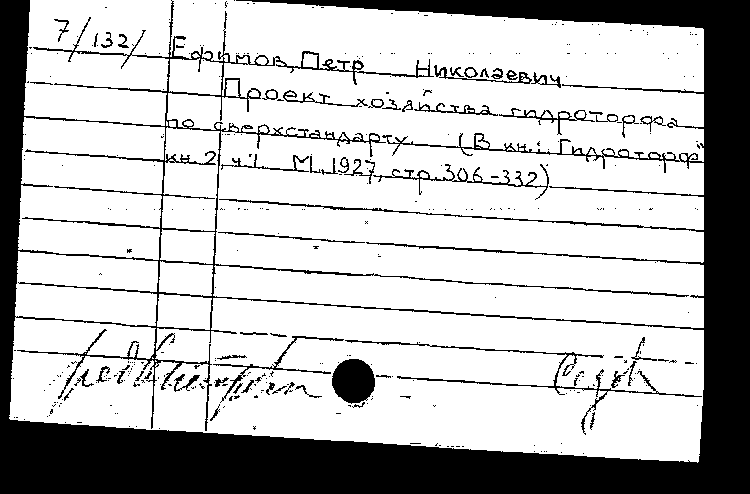 7/132/ Ефимов, Петр Николаевич
Проект хозяйства гидроторфа
по сверхстандарту. (В кн.: Гидроторф"
кн. 2, ч. 1. М., 1927, стр. 306-332)